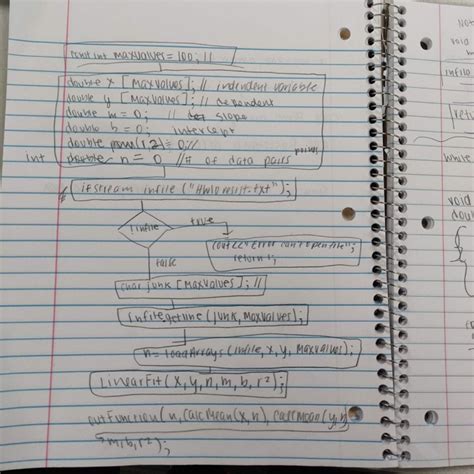 const int maxvalues = 100; //
double x [maxvalues]; // indendent variable
double y [maxvalues]; // dependent
double m = 0; // slope
double b = 0; intercept
double 0; //
int double n = 0 //# of data pairs points
ifstream infile ("HW10resist.txt");
!infile
true
cout<< "Error can't open file";
return 1;
false
char junk [maxvalues]; //
infile.getline (junk, maxvalues);
n = loadArrays (infile, x, y, maxvalues);
linearFit (x, y, n, m, b, r²);
outFunction (n, calcMean(x,n), calcMean(y,n)
m, b, r²);
Not
void
infile
retu
while
void
doub